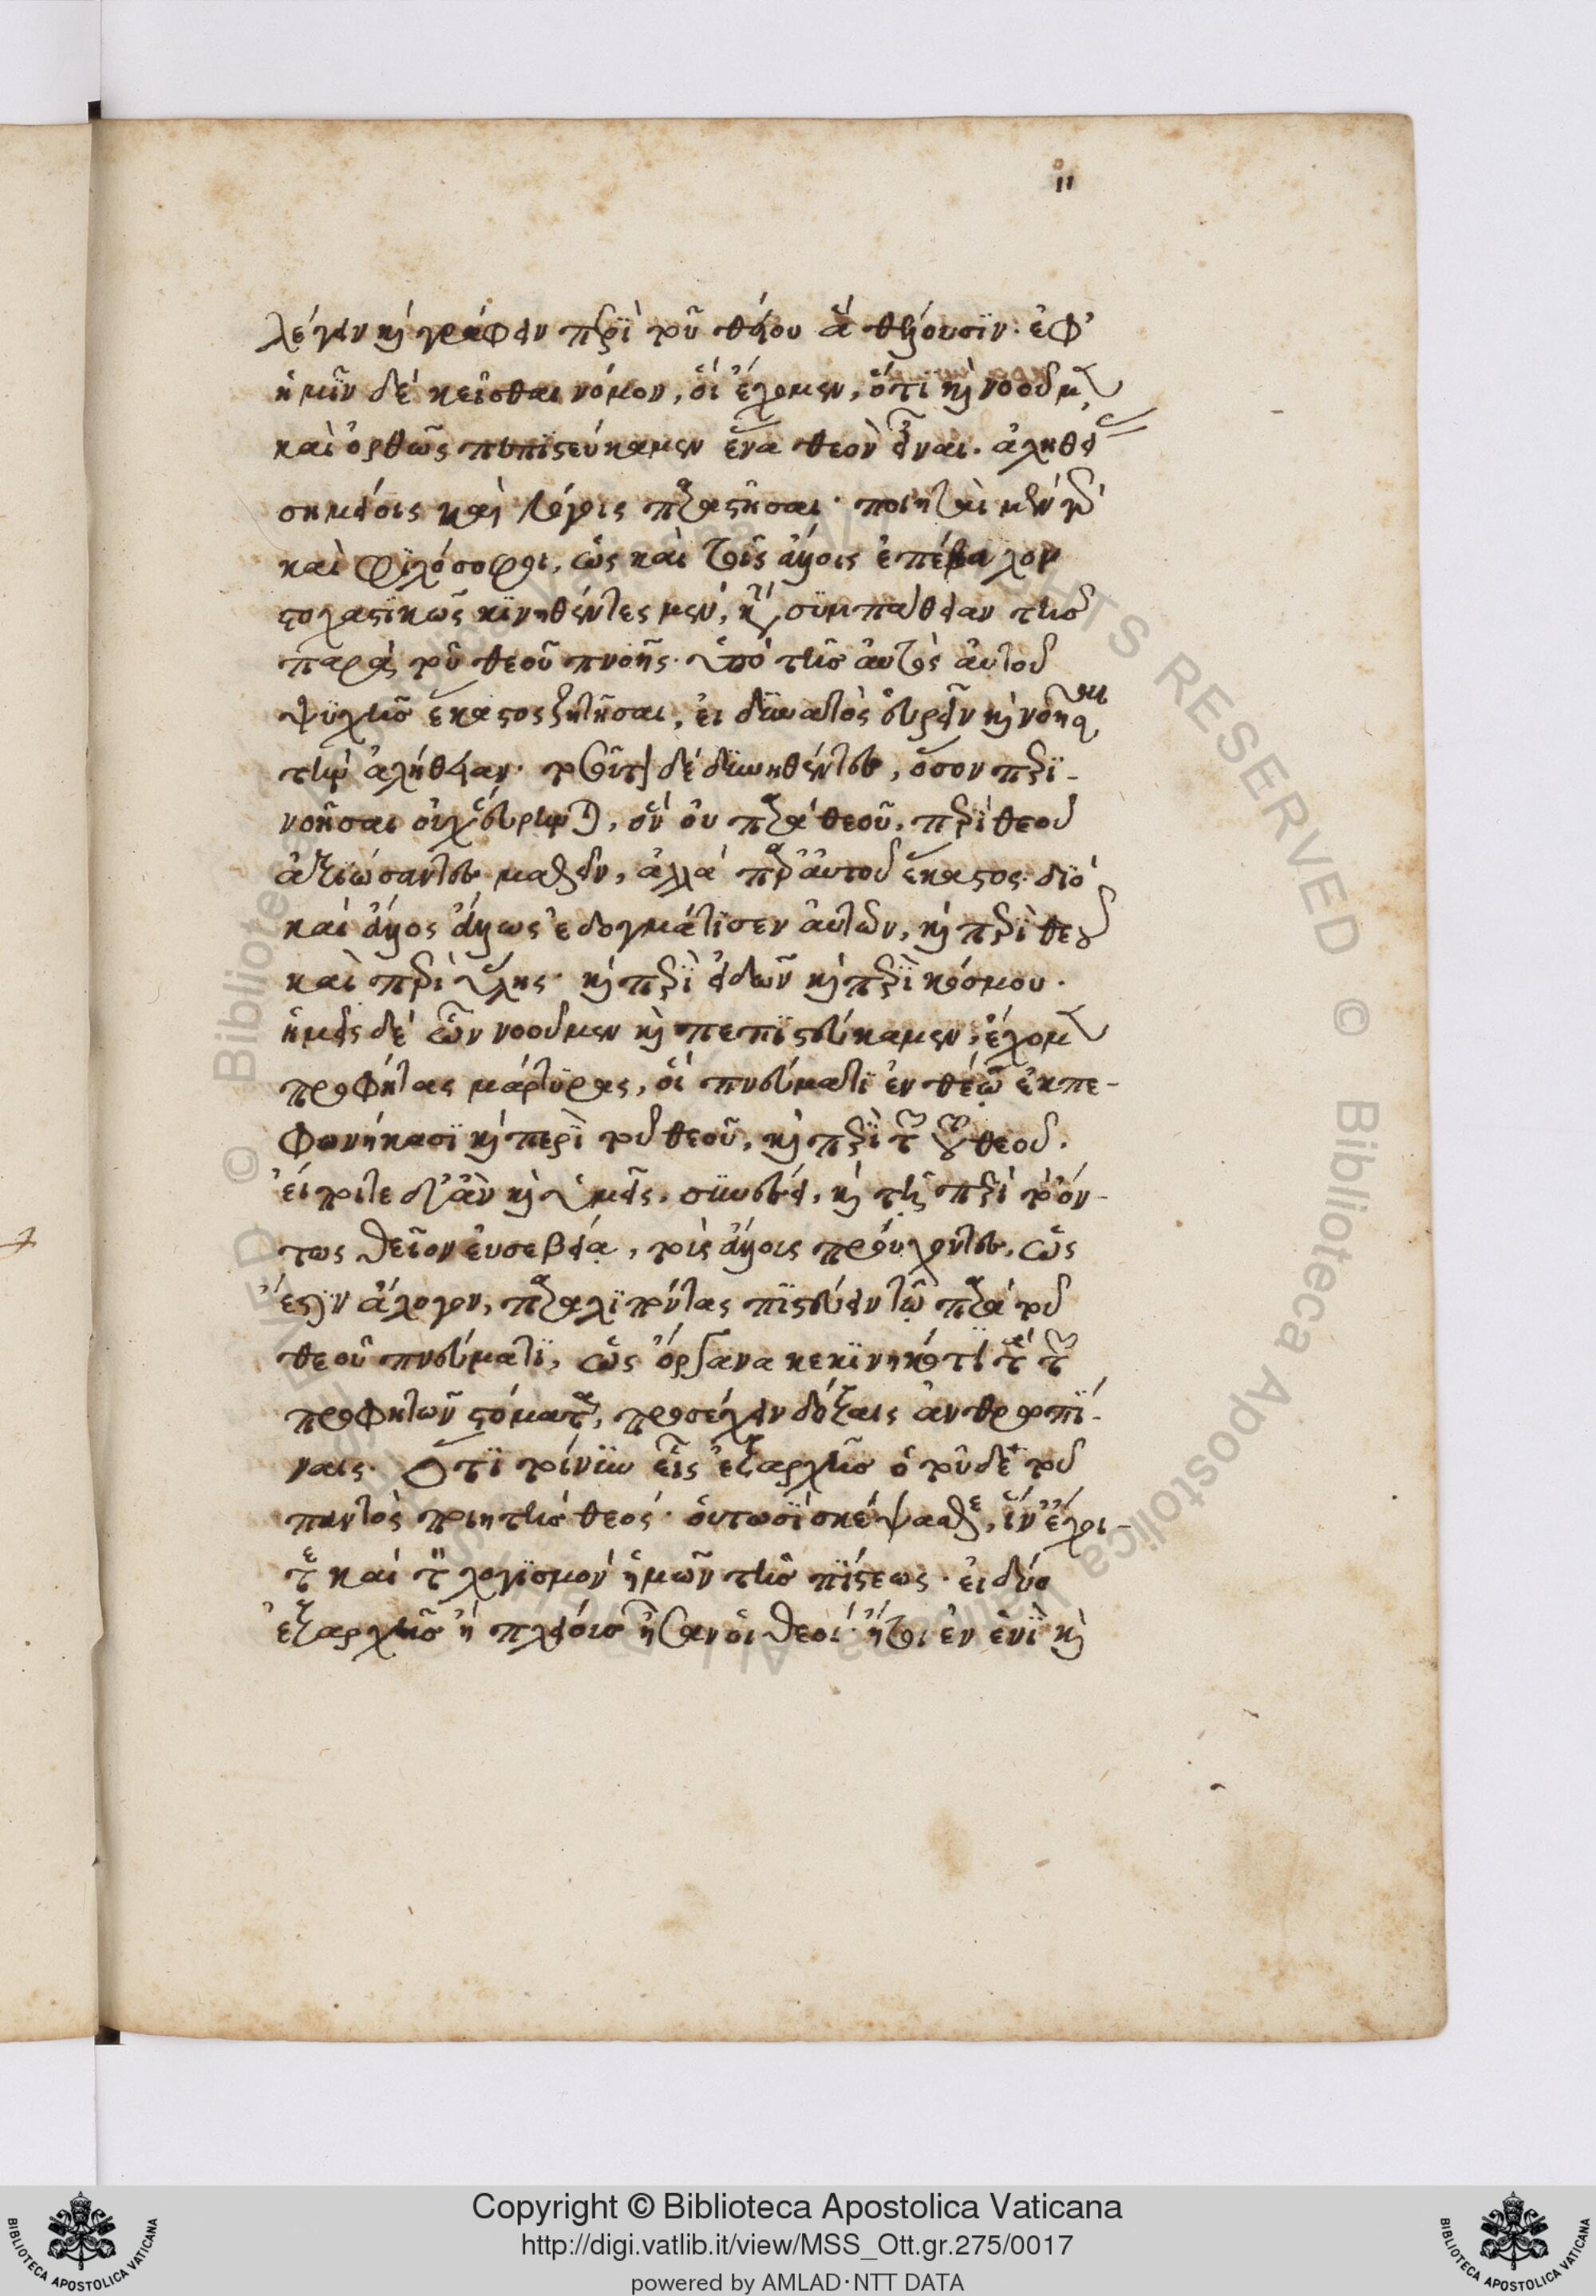 11
λέγειν καὶ γράφειν περὶ τοῦ θείου ἃ θέλουσιν. ἐφ'
ἡμῖν δὲ κεῖσθαι νόμον, οἳ ἔχομεν, ὅτι καὶ νοοῦμεν
καὶ ὀρθῶς πεπιστεύκαμεν ἕνα θεὸν εἶναι. ἀληθέ
σημείοις καὶ λόγοις παραστῆσαι. ποιηταὶ μὲν γὰρ
καὶ φιλόσοφοι, ὡς καὶ τοῖς ἄλλοις ἐπέβαλον
στοχαστικῶς κινηθέντες μὲν, κατὰ συμπάθειαν τῆς
παρὰ τοῦ θεοῦ πνοῆς. ὑπὸ τῆς αὐτὸς αὐτοῦ
ψυχῆς ἕκαστος ζητῆσαι, εἰ δυνατὸς εὑρεῖν καὶ νοῆσαι
τὴν ἀλήθειαν. τοσοῦτον δὲ δυνηθέντες, ὅσον περι-
νοῆσαι οὐχ εὑρεῖν, ὂν οὐ παρὰ θεοῦ, περὶ θεοῦ
ἀξιώσαντες μαθεῖν, ἀλλὰ παρ' αὐτοῦ ἕκαστος. διὸ
καὶ ἄλλος ἄλλως ἐδογμάτισεν αὐτῶν, καὶ περὶ θεοῦ
καὶ περὶ ὕλης. καὶ περὶ εἰδῶν καὶ περὶ κόσμου.
ἡμεῖς δὲ ὧν νοοῦμεν καὶ πεπιστεύκαμεν, ἔχομεν
προφήτας μάρτυρας, οἳ πνεύματι ἐνθέῳ ἐκπε-
φωνήκασι καὶ περὶ τοῦ θεοῦ, καὶ περὶ τῶν τοῦ θεοῦ.
εἴποιτε δ' ἂν καὶ ὑμεῖς. συνέσει, καὶ τῇ περὶ τὸ ὄν-
τως θεῖον εὐσεβείᾳ, τοὺς ἄλλοις προύχοντες, ὡς
ἔστιν ἄλογον, παραλιπόντας πιστεύειν τῷ παρὰ τοῦ
θεοῦ πνεύματι, ὡς ὄργανα κεκινηκότι τὰ τῶν
προφητῶν στόματα, προσέχειν δόξαις ἀνθρωπί-
ναις. Ὅτι τοίνυν εἷς ἐξ ἀρχῆς ὁ τοῦδε τοῦ
παντὸς ποιητὴς θεός. οὑτωσὶ σκέψασθε, ἵν' ἔχοι-
τε καὶ τὸν λογισμὸν ἡμῶν τῆς πίστεως. εἰ δύο
ἐξ ἀρχῆς ἢ πλείους ἦσαν οἱ θεοί. ἤτοι ἐν ἑνὶ καὶ
Copyright © Biblioteca Apostolica Vaticana
http://digi.vatlib.it/view/MSS_Ott.gr.275/0017
powered by AMLAD·NTT DATA